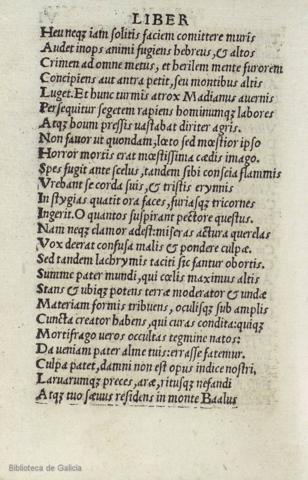 LIBER
Heu neqȝ iam solitis faciem comittere muris
Audet inops animi fugiens hebreus, & altos
Crimen ad omne metus, et herilem mente furorem
Concipiens aut antra petit, seu montibus altis
Luget. Et hunc turmis atrox Madianus auernis
Persequitur segetem rapiens hominumqȝ labores
Atqȝ boum pressis uastabat diriter agris.
Non fauor ut quondam, lœto sed mœstior ipso
Horror mortis erat mœstissima cædis imago.
Spes fugit ante scelus, tandem sibi conscia flammis
Vrebant se corda suis, & tristis erynnis
In stygias quatit ora faces, furiasqȝ tricornes
Ingerit. O quantos suspirant pectore questus.
Nam neqȝ clamor adest: miseras actura querelas
Vox deerat confusa malis & pondere culpæ.
Sed tandem lachrymis taciti sic fantur obortis.
Summe pater mundi, qui cœlis maximus altis
Stans & ubiqȝ potens terræ moderator & undæ
Materiam formis tribuens, oculisqȝ sub amplis
Cuncta creator habens, qui curas condita: quiqȝ
Mortifrago ueros occultas tegmine natos:
Da ueniam pater alme tuis: errasse fatemur.
Culpa patet, damni non est opus indice nostri,
Laruarumqȝ preces, aræ, ritusqȝ nefandi
Atqȝ tuo sæuus residens in monte Baalus
Biblioteca de Galicia